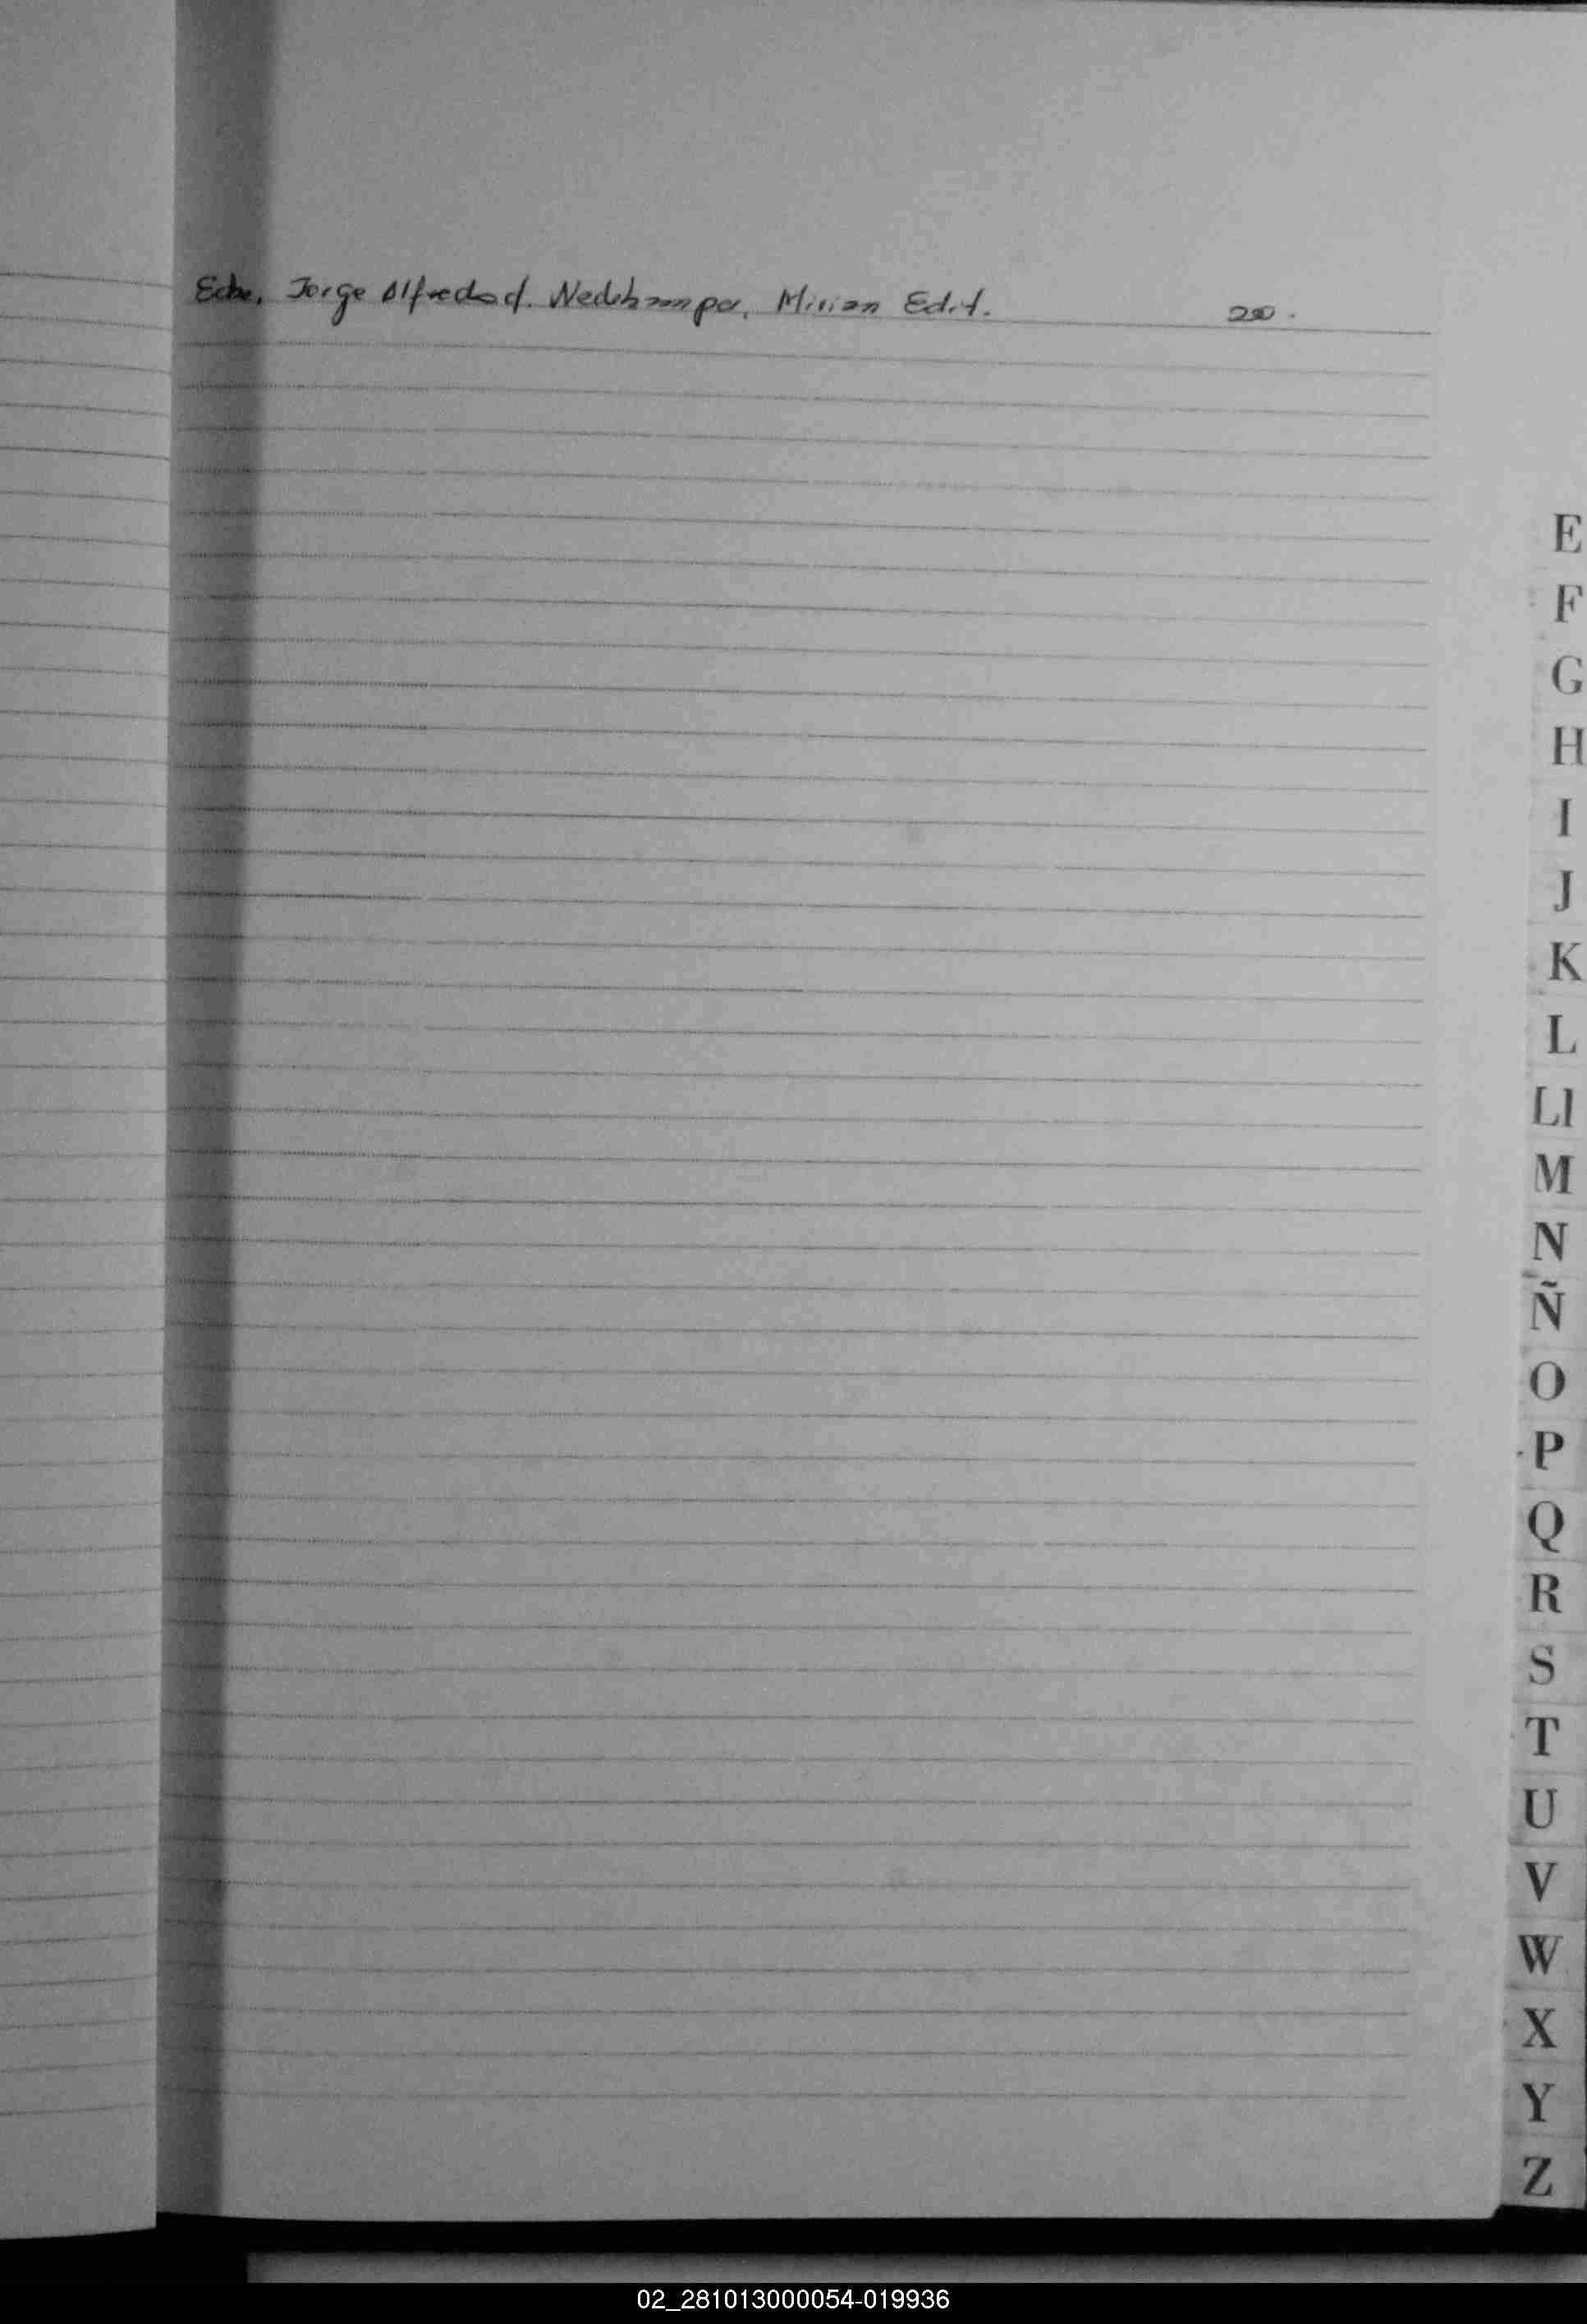 Jorge Alfredo c/. Mirian Edit. 200.
E
F
G
H
I
J
K
L
Ll
M
N
Ñ
O
P
Q
R
S
T
U
V
W
X
Y
Z
02_281013000054-019936